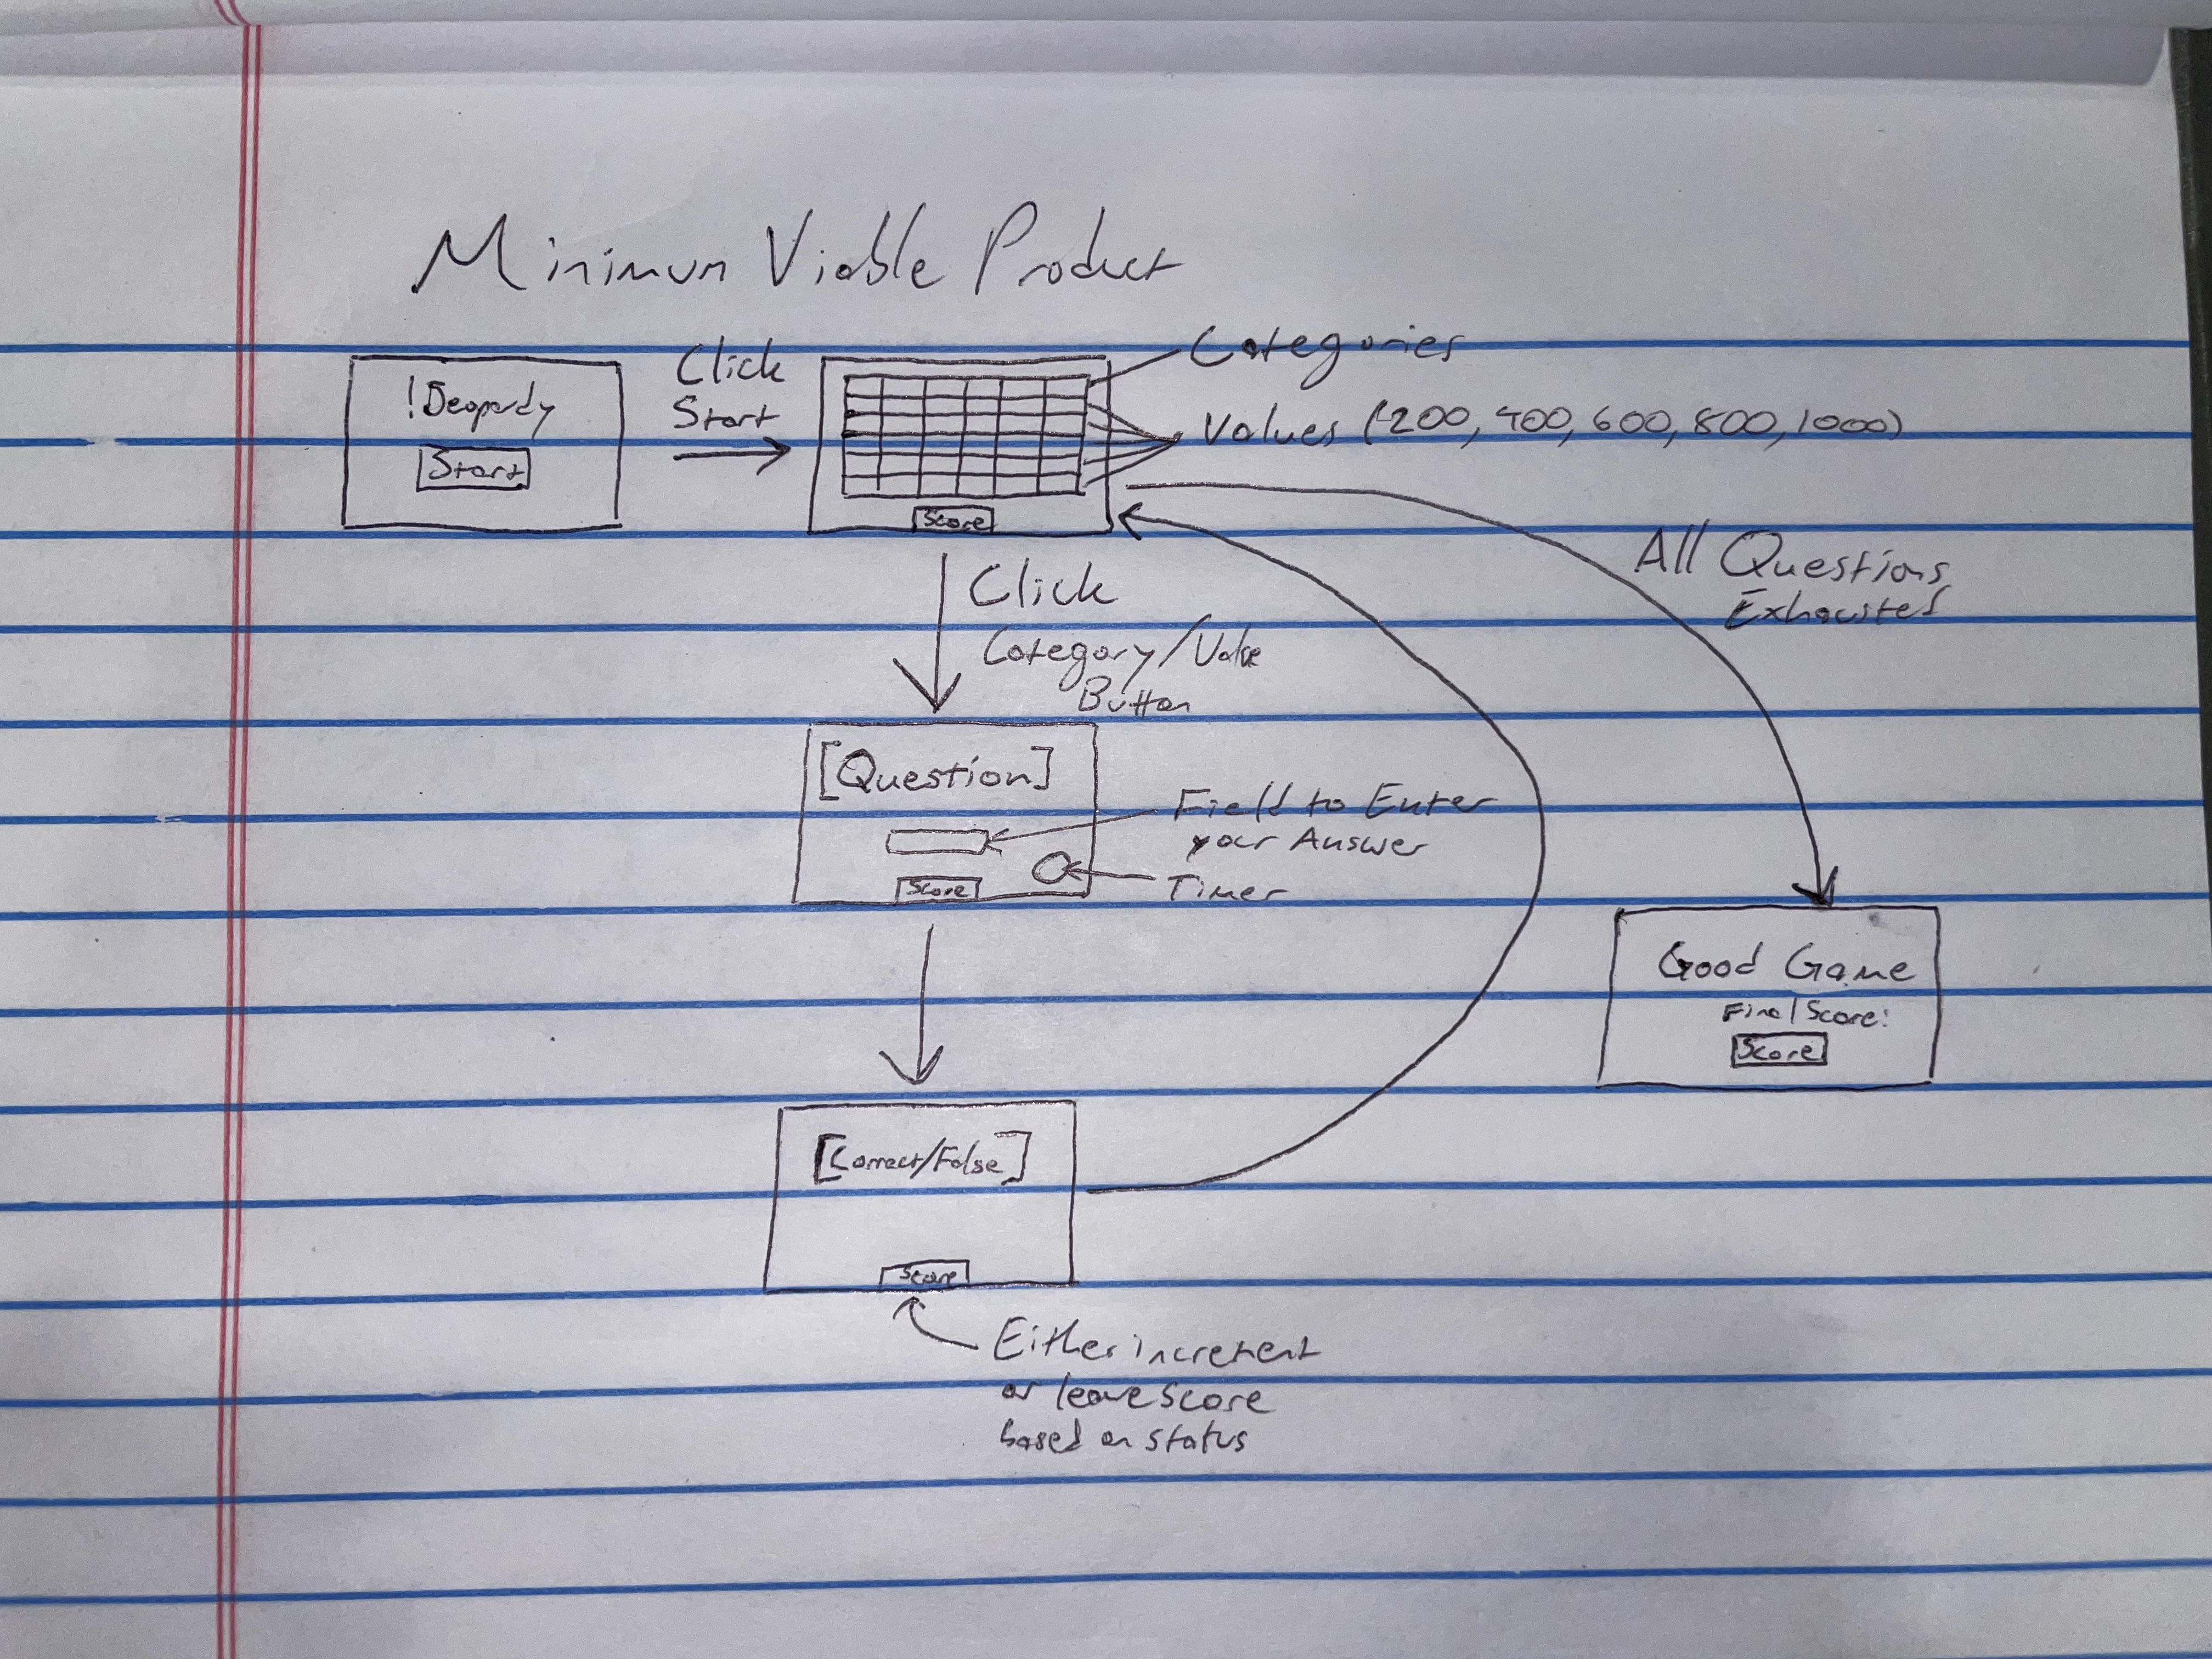 Minimum Viable Product
!Deopardy
Start
Click
Start
Categories
Values (200, 400, 600, 800, 1000)
Score
All Questions
Exhausted
Click
Category/Value
Button
[Question]
Field to Enter
your Answer
Timer
Score
Good Game
Final Score:
Score
[Correct/False]
Score
Either increment
or leave score
based on status